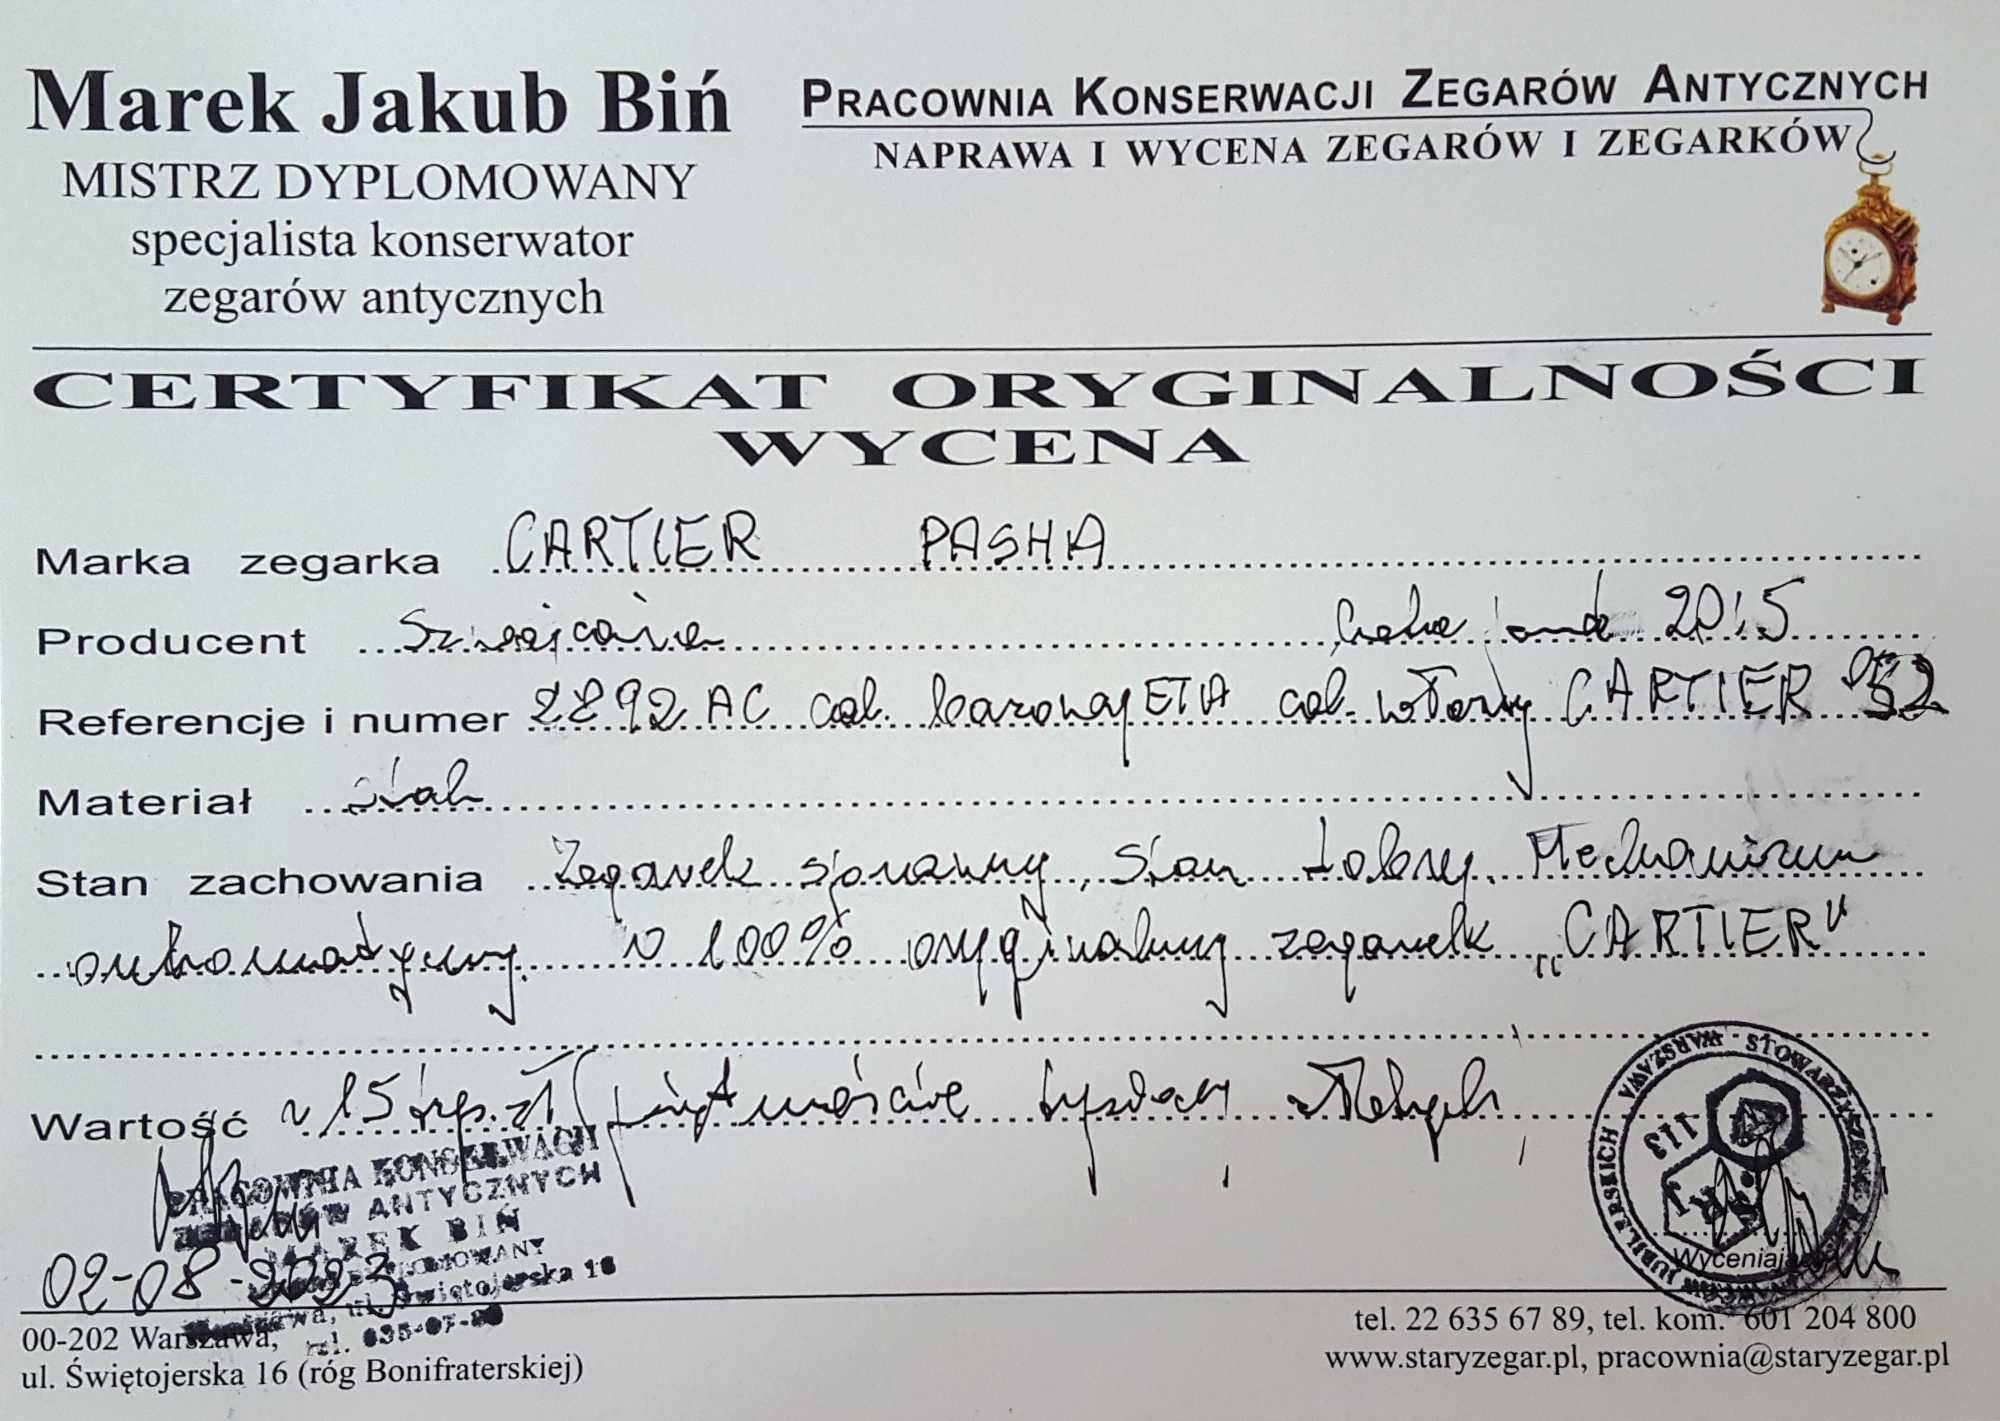 Marek Jakub Biń
MISTRZ DYPLOMOWANY
specjalista konserwator
zegarów antycznych
PRACOWNIA KONSERWACJI ZEGARÓW ANTYCZNYCH
NAPRAWA I WYCENA ZEGARÓW I ZEGARKÓW
CERTYFIKAT ORYGINALNOŚCI
WYCENA
Marka zegarka CARTIER PASHA
Producent Szwajcaria 2015
Referencje i numer 2892 AC cal. bazowy ETA cal. własny CARTIER 052
Materiał stal
Stan zachowania Zegarek sprawny, stan dobry. Mechanizm
automatyczny. w 100% oryginalny zegarek „CARTIER"
Wartość ~ 15 tys. zł (piętnaście tysięcy złotych
PRACOWNIA KONSERWACJI
ZEGARÓW ANTYCZNYCH
MAREK BIŃ
DYPLOMOWANY
Warszawa, ul. Świętojerska 16
tel. 635-67-89
02-08-2023
STOWARZYSZENIE JUBILERSKICH WARSZAWA
113
Wyceniający
00-202 Warszawa,
ul. Świętojerska 16 (róg Bonifraterskiej)
tel. 22 635 67 89, tel. kom. 601 204 800
www.staryzegar.pl, pracownia@staryzegar.pl